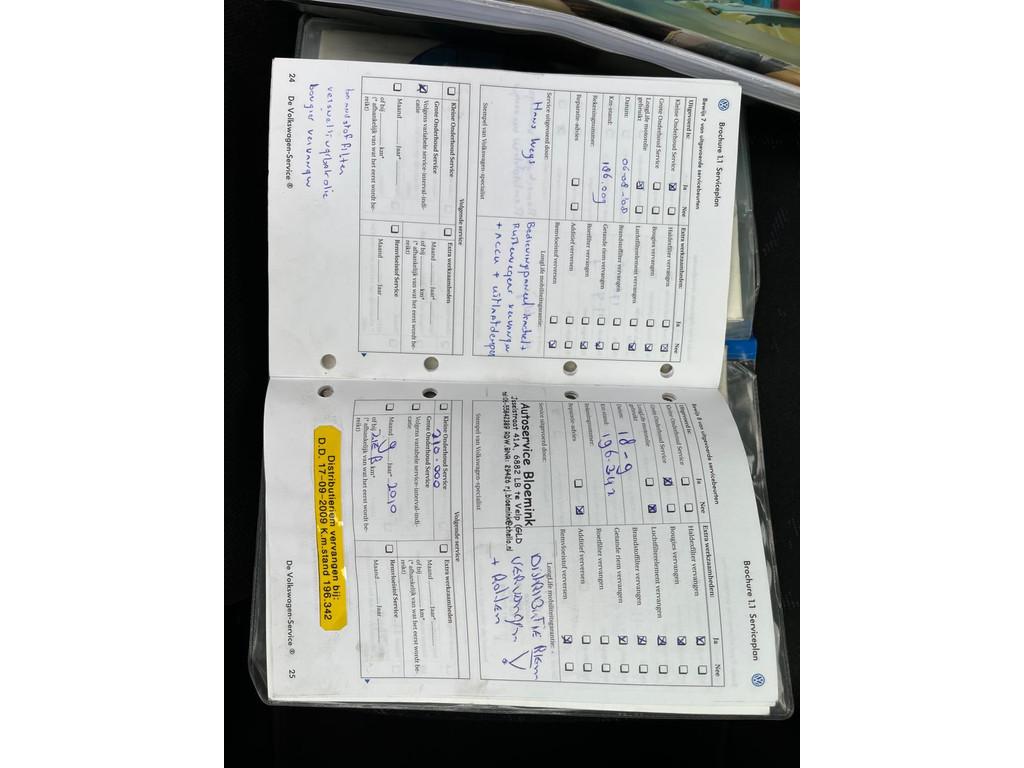 Brochure 1.1 Serviceplan
Bewijs 7 van uitgevoerde servicebeurten
Uitgevoerd is: Ja Nee
Kleine Onderhoud Service
Grote Onderhoud Service
LongLife motorolie gebruikt
Datum: 06-08-'08
Km-stand: 186.009
Rekeningnummer:
Reparatie-advies
Extra werkzaamheden: Ja Nee
Halderfilter vervangen
Bougies vervangen
Luchtfilterelement vervangen
Brandstoffilter vervangen
Getande riem vervangen
Roetfilter vervangen
Additief verversen
Remvloeistof verversen
Service uitgevoerd door:
LongLife mobiliteitsgarantie:
Hans Weys
Bedieningspaneel kachel +
Ruitenwegear vervangen
+ Accu + uitlaatdemper
Stempel van Volkswagen-specialist
Volgende service
Kleine Onderhoud Service
Grote Onderhoud Service
Volgens variabele service-interval-indi-
catie
Maand Jaar*
of bij km*
(* afhankelijk van wat het eerst wordt be-
reikt)
Extra werkzaamheden
Maand Jaar*
of bij km*
(* afhankelijk van wat het eerst wordt be-
reikt)
Remvloeistof Service
Maand Jaar
brandstoffilter
bougier vervangen
24 De Volkswagen-Service ®
Brochure 1.1 Serviceplan
Bewijs 8 van uitgevoerde servicebeurten
Uitgevoerd is: Ja Nee
Kleine Onderhoud Service
Grote Onderhoud Service
LongLife motorolie
gebruikt
Datum: 18-9
Km-stand: 196.342
Rekeningnummer:
Reparatie-advies
Extra werkzaamheden: Ja Nee
Halderfilter vervangen
Bougies vervangen
Luchtfilterelement vervangen
Brandstoffilter vervangen
Getande riem vervangen
Roetfilter vervangen
Additief verversen
Remvloeistof verversen
Service uitgevoerd door:
LongLife mobiliteitsgarantie:
Autoservice Bloemink
IJsselstraat 41A, 6882 LB te Velp (GLD
DISTRIBUTIE Riem
VERVangen
+ Rollen
Stempel van Volkswagen-specialist
Volgende service
Kleine Onderhoud Service
210.000
Grote Onderhoud Service
Volgens variabele service-interval-indi-
catie
Maand 9 Jaar* 2010
of bij km*
(* afhankelijk van wat het eerst wordt be-
reikt)
Extra werkzaamheden
Maand Jaar*
of bij km*
(* afhankelijk van wat het eerst wordt be-
reikt)
Remvloeistof Service
Maand Jaar
Distributieriem vervangen bij:
D.D. 17-09-2009 K.m.stand 196.342
De Volkswagen-Service ® 25